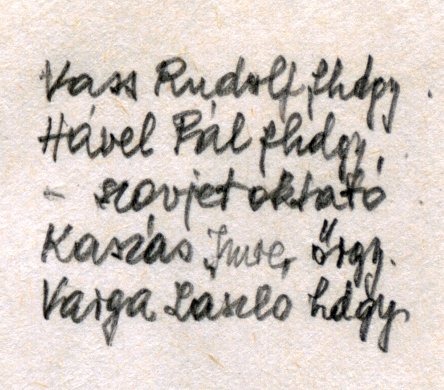 Vass Rudolf fhdgy.
Hável Pál fhdgy.
- szovjet oktató
Kaszás Imre, őrgy.
Varga László hdgy.